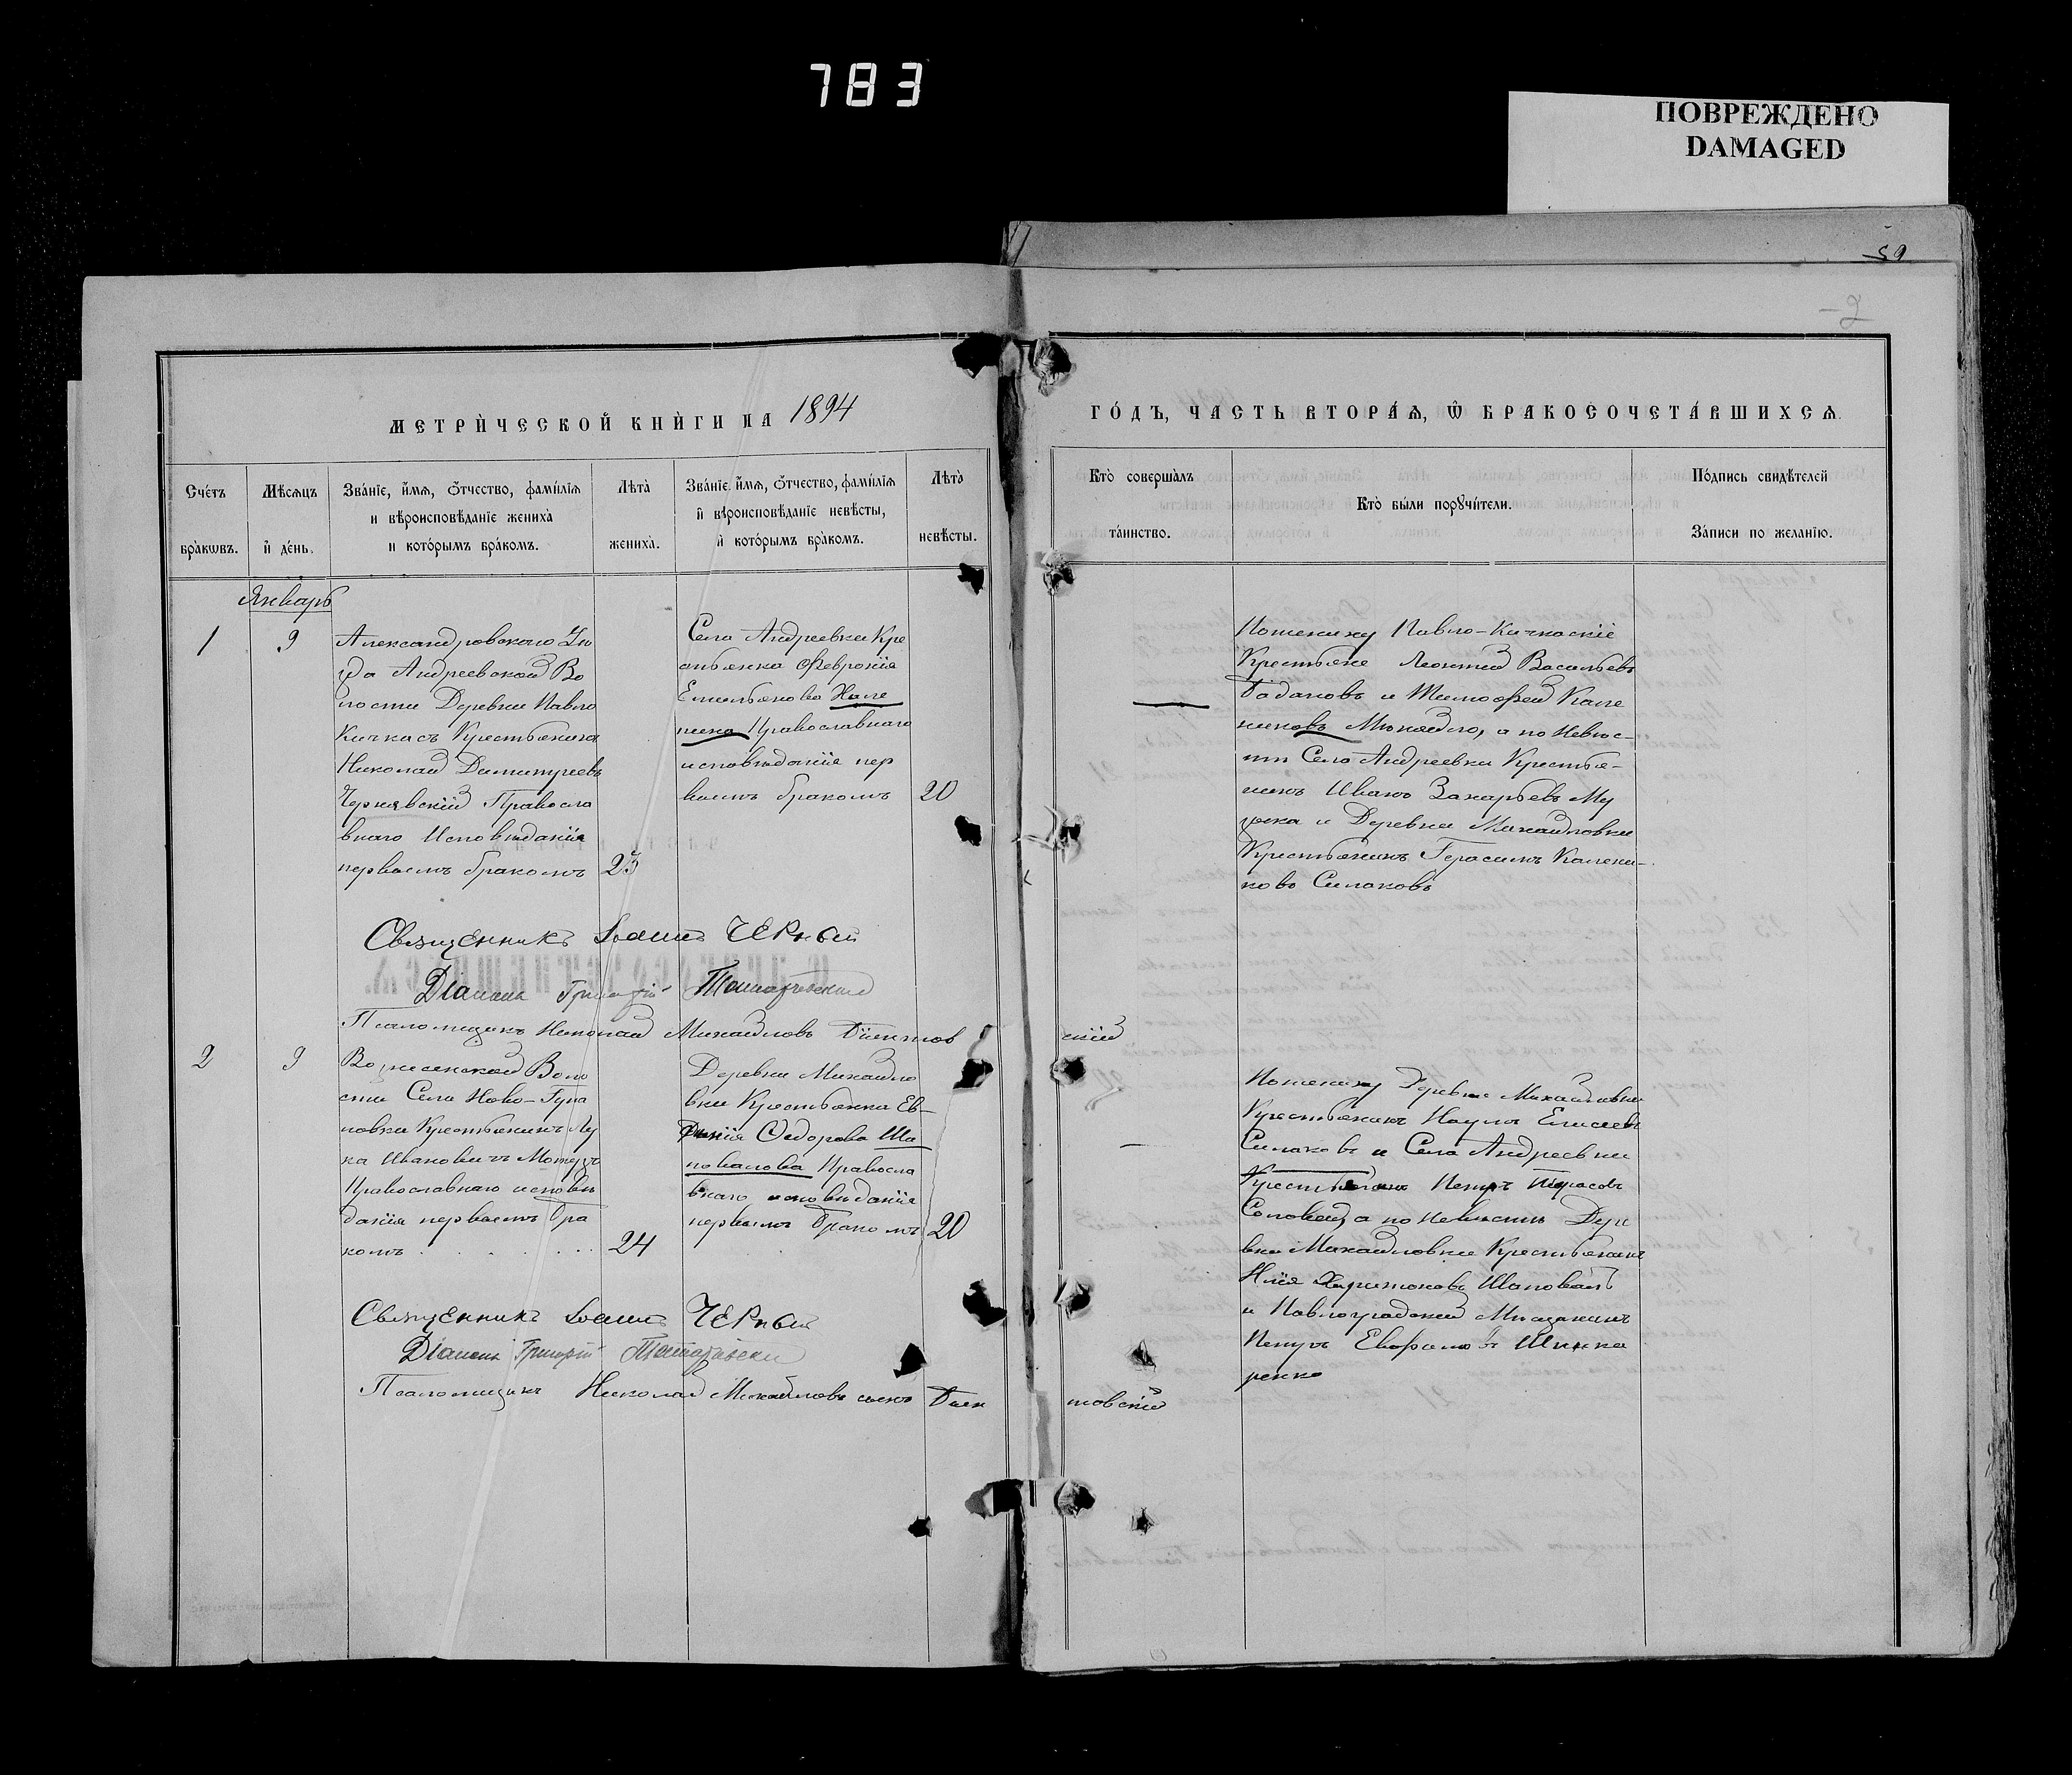 783
ПОВРЕЖДЕНО
DAMAGED
59
2
МЕТРИ́ЧЕСКОЙ КНИ́ГИ НА 1894
ГО́ДЪ, ЧАСТЬ ВТОРА́Ѧ, Ѿ БРАКОСОЧЕТА́ВШИХСѦ.
Сче́тъ бра́кѡвъ.
Мѣ́сѧцъ и҆ де́нь.
Зва́нїе, и҆́мѧ, ѻ҆́тчество, фамилїѧ
и вѣроисповѣ́данїе жениха̀
и кото́рымъ бра́комъ.
Лѣта̀ жениха̀.
Зва́нїе, и҆́мѧ, ѻ҆́тчество, фами́лїѧ
и҆ вѣроисповѣ́данїе невѣ́сты,
и҆ кото́рымъ бра́комъ.
Лѣта̀ невѣ́сты.
Кто̀ соверша́лъ
та́инство.
Кто̀ бы́ли порꙋчи́тели.
По́дпись свидѣ́телей
За́писи по жела́нїю.
Январь
1
9
Александровскаго Уѣ
зда Андреевской Во
лости Деревни Павло
Кичкасъ Крестьянинъ
Николай Димитріевъ
Чернявскій Правосла
внаго Исповѣданія
первымъ бракомъ
23
Села Андреевки Кре
стьянка Февронія
Емельянова Кале
ника Православнаго
исповѣданія пер
вымъ бракомъ
20
По жениху Павло-Кичкаскіе
Крестьяне Леонтій Васильевъ
и Тимофей Кале
никовъ а по Невѣс-
ти Села Андреевки Крестья-
нинъ Иванъ Захарьевъ Му
зыка и Деревни Михайловки
Крестьянинъ Герасимъ Калени-
ковъ Силаковъ
Священникъ Іоаннъ Черный
Діаконъ Григорій
Псаломщикъ Николай Михайловъ
скій
2
9
Вознесенской Воло
сти Села Ново-Гупа
ловки Крестьянинъ Лу
ка Ивановичъ
Православнаго исповѣ
данія первымъ бра
комъ
24
Деревни Михайло
вки Крестьянка Ев-
фимія Федорова Ша
повалова Правосла
внаго исповѣданія
первымъ бракомъ
20
По жениху Деревни Михайловки
Крестьянинъ Наумъ Елисеевъ
Силаковъ и Села Андреевки
Крестьянинъ Петръ Тарасовъ
Соловей, а по невѣсти Дере
вни Михайловки Крестьянинъ
Илія Харитоновъ Шаповалъ
и Павлоградскій Мѣщанинъ
Петръ Евфимовъ Шинка
ренко
Священникъ Іоаннъ Черный
Діаконъ Григорій
Псаломщикъ Николай Михайловъ сынъ
товскій